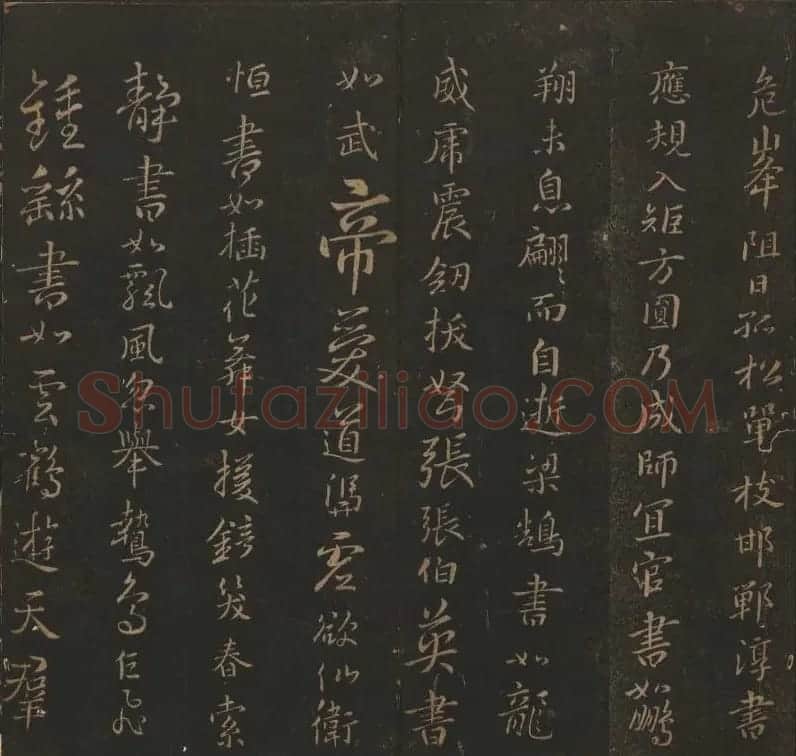 危峯阻日孤松單枝邯鄲淳書
應規入矩方圓乃成師宜官書如鵬
翔未息翩〻而自逝梁鵠書如龍
威虎震劒拔弩張張伯英書
如武帝愛道馮虛欲仙衛
恒書如插花舞女援鏡笑春索
靜書如飄風忽舉鷙鳥乍飛
鍾繇書如雲鶴遊天羣
Shufaziliao.COM